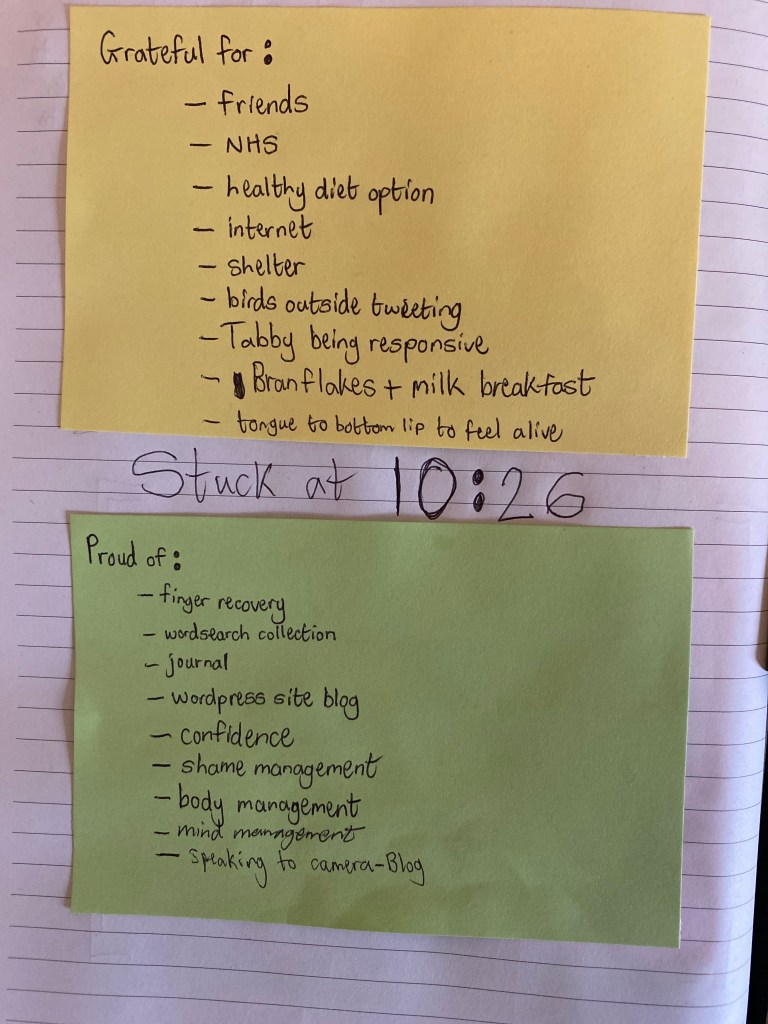 Grateful for:
- friends
- NHS
- healthy diet option
- internet
- shelter
- birds outside tweeting
- Tabby being responsive
- Branflakes + milk breakfast
- tongue to bottom lip to feel alive
Stuck at 10:26
Proud of:
- finger recovery
- wordsearch collection
- journal
- wordpress site blog
- confidence
- shame management
- body management
- mind management
- speaking to camera-Blog